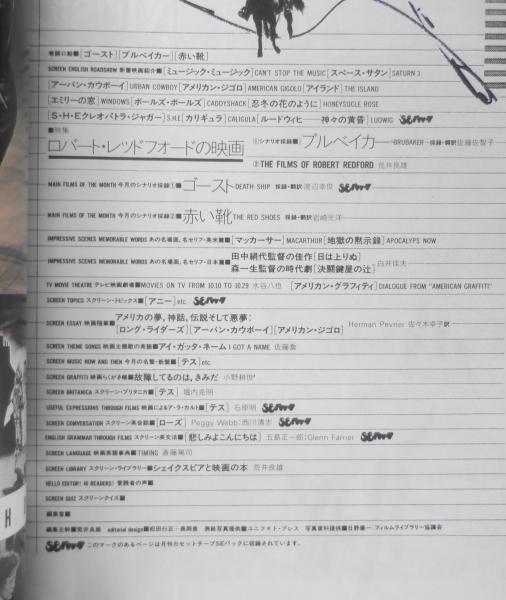 巻頭口絵■[ゴースト][ブルベイカー][赤い靴]
SCREEN ENGLISH ROADSHOW 新着映画紹介■[ミュージック・ミュージック]CAN'T STOP THE MUSIC[スペース・サタン]SATURN 3
[アーバン・カウボーイ]URBAN COWBOY[アメリカン・ジゴロ]AMERICAN GIGOLO[アイランド]THE ISLAND
[エミリーの窓]WINDOWS[ボールズ・ボールズ]CADDYSHACK[忍冬の花のように]HONEYSUCLE ROSE
[S・H・Eクレオパトラ・ジャガー]S.H.E[カリギュラ]CALIGULA[ルードウィヒ——神々の黄昏]LUDWIG SEパック
■特集
ロバート・レッドフォードの映画
①シナリオ採録■ブルベイカー——BRUBAKER—採録・翻訳 佐藤佐智子
②THE FILMS OF ROBERT REDFORD 荒井良雄
MAIN FILMS OF THE MONTH 今月のシナリオ採録①■ゴースト DEATH SHIP 採録・翻訳 渡辺幸俊 SEパック
MAIN FILMS OF THE MONTH 今月のシナリオ採録②■赤い靴 THE RED SHOES 採録・翻訳 岩崎光洋
IMPRESSIVE SCENES MEMORABLE WORDS あの名場面、名セリフ・英米篇■[マッカーサー]MACARTHUR[地獄の黙示録]APOCALYPS NOW
IMPRESSIVE SCENES MEMORABLE WORDS あの名場面、名セリフ・日本篇■田中絹代監督の佳作[月は上りぬ]
森一生監督の時代劇[決闘鍵屋の辻]白井佳夫
TV MOVIE THEATRE テレビ映画劇場■MOVIES ON TV FROM 10.10 TO 10.29 水谷八也 [アメリカン・グラフィティ]DIALOGUE FROM "AMERICAN GRAFFITI"
SCREEN TOPICS スクリーン・トピックス■[アニー]etc. SEパック
SCREEN ESSAY 映画随筆■アメリカの夢，神話，伝説そして悪夢：
[ロング・ライダーズ][アーバン・カウボーイ][アメリカン・ジゴロ] Herman Pevner 佐々木幸子訳
SCREEN THEME SONGS 映画主題歌の英語■アイ・ガッタ・ネーム I GOT A NAME 佐藤喬
SCREEN MUSIC NOW AND THEN 今月の名盤・新盤■[テス]etc.
SCREEN GRAFFITI 映画らくがき帳■故障してるのは，きみだ 小野耕世
SCREEN BRITANICA スクリーン・ブリタニカ■[テス] 堀内克明
USEFUL EXPRESSIONS THROUGH FILMS 映画によるア・ラ・カルト■[テス] 石原明 SEパック
SCREEN CONVERSATION スクリーン英会話■[ローズ] Peggy Webb：西川清志 SEパック
ENGLISH GRAMMAR THROUGH FILMS スクリーン英文法■[悲しみよこんにちは]五島正一郎：Glenn Farrier SEパック
SCREEN LANGUAGE 映画英語事典■TIMING 斎藤篤司
SCREEN LIBRARY スクリーン・ライブラリー■シェイクスピアと映画の本 荒井良雄
HELLO EDITOR! HI READERS! 愛読者の声■
SCREEN QUIZ スクリーンクイズ■
編集室■
編集主幹■荒井良雄 editorial design■松田行正＋長岡直 表紙写真提供■ユニフォト・プレス 写真資料提供■日野康一 フィルムライブラリー協議会
SEパック このマークのあるページは月刊カセットテープSEパックに収録されています。
H